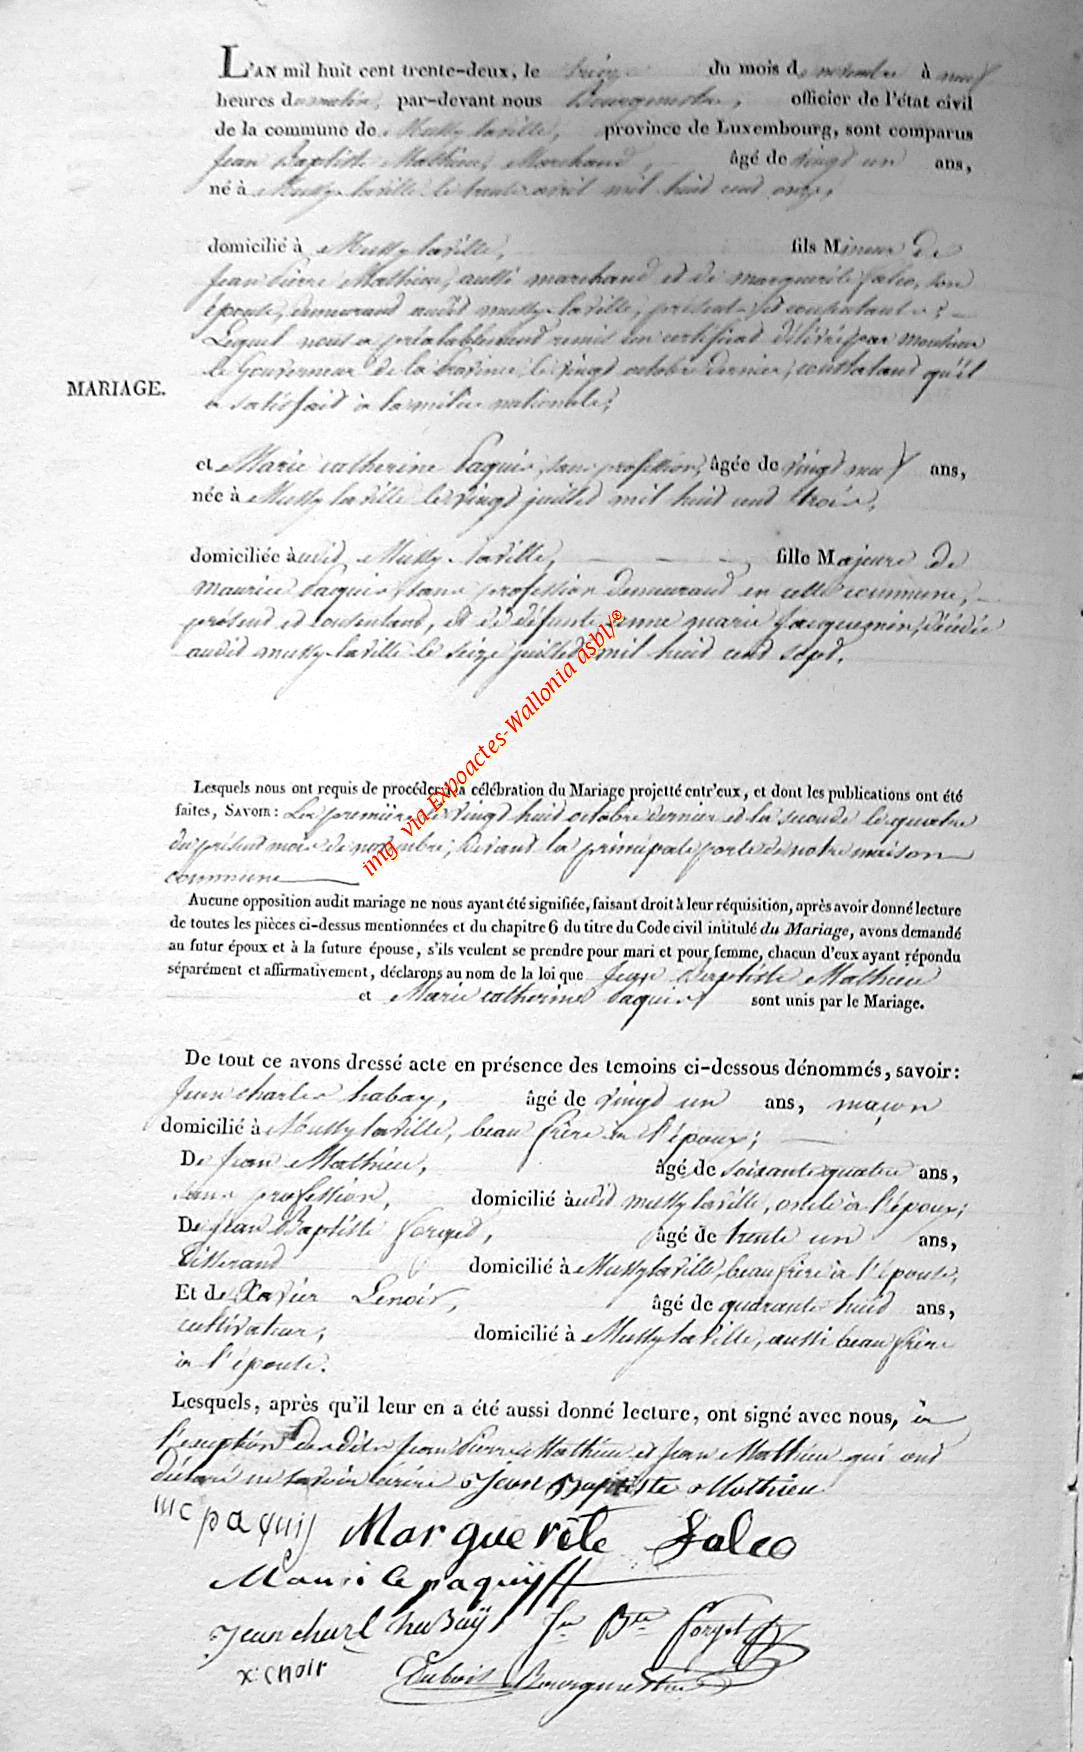 L'AN mil huit cent trente-deux, le treize du mois de novembre à neuf
heures du matin, par-devant nous Bourgmestre, officier de l'état civil
de la commune de Mussy laville, province de Luxembourg, sont comparus
Jean Baptiste Mathieu, Marchand, âgé de vingt un ans,
né à Mussy-laville le trente avril mil huit cent onze,
domicilié à Mussy laville, fils Mineur de
Jean Pierre Mathieu, aussi marchand et de marguerite Saleo, son
épouse, demeurant audit mussy-laville, présents et consentants;
Lequel nous a préalablement remis un certificat délivré par Monsieur
le Gouverneur de la Province, le vingt octobre dernier, constatant qu'il
a satisfait à la milice nationale;
MARIAGE.
et Marie catherine Paquis, sans profession, âgée de vingt neuf ans,
née à Mussy laville le vingt juillet mil huit cent trois,
domiciliée audit Mussy-laville, fille Majeure de
Maurice Paquis sans profession demeurant en cette commune,
présent et consentant, et de défunte anne marie Jacquemin, décédée
audit mussy-laville le seize juillet mil huit cent sept.
Lesquels nous ont requis de procéder à la célébration du Mariage projetté entr'eux, et dont les publications ont été
faites, SAVOIR: La première le vingt huit octobre dernier et la seconde le quatre
du présent mois de novembre, devant la principale porte de notre maison
commune
img via Expoactes-Wallonia asbl/®
Aucune opposition audit mariage ne nous ayant été signifiée, faisant droit à leur réquisition, après avoir donné lecture
de toutes les pièces ci-dessus mentionnées et du chapitre 6 du titre du Code civil intitulé du Mariage, avons demandé
au futur époux et à la future épouse, s'ils veulent se prendre pour mari et pour femme, chacun d'eux ayant répondu
séparément et affirmativement, déclarons au nom de la loi que Jean Baptiste Mathieu
et Marie catherine Paquis sont unis par le Mariage.
De tout ce avons dressé acte en présence des temoins ci-dessous dénommés, savoir:
Jean charles habay, âgé de vingt un ans, maçon
domicilié à Mussy laville, beau frère à l'époux;
De Jean Mathieu, âgé de soixante quatre ans,
sans profession, domicilié audit mussy laville, oncle à l'époux;
De Jean Baptiste forget, âgé de trente un ans,
Tisserand domicilié à Mussy laville, beau frère à l'épouse,
Et de Xavier Lenoir, âgé de quarante huit ans,
cultivateur, domicilié à Mussy laville, aussi beau frère
à l'épouse.
Lesquels, après qu'il leur en a été aussi donné lecture, ont signé avec nous, à
l'exception desdits Jean Pierre Mathieu et Jean Mathieu qui ont
déclaré ne savoir écrire Jean Baptiste Mathieu
mc paquis Marguerete Saleo
Maurice paquis
Jean charl habay Jn Bte forget
x lenoir Dubois Bourgmestre